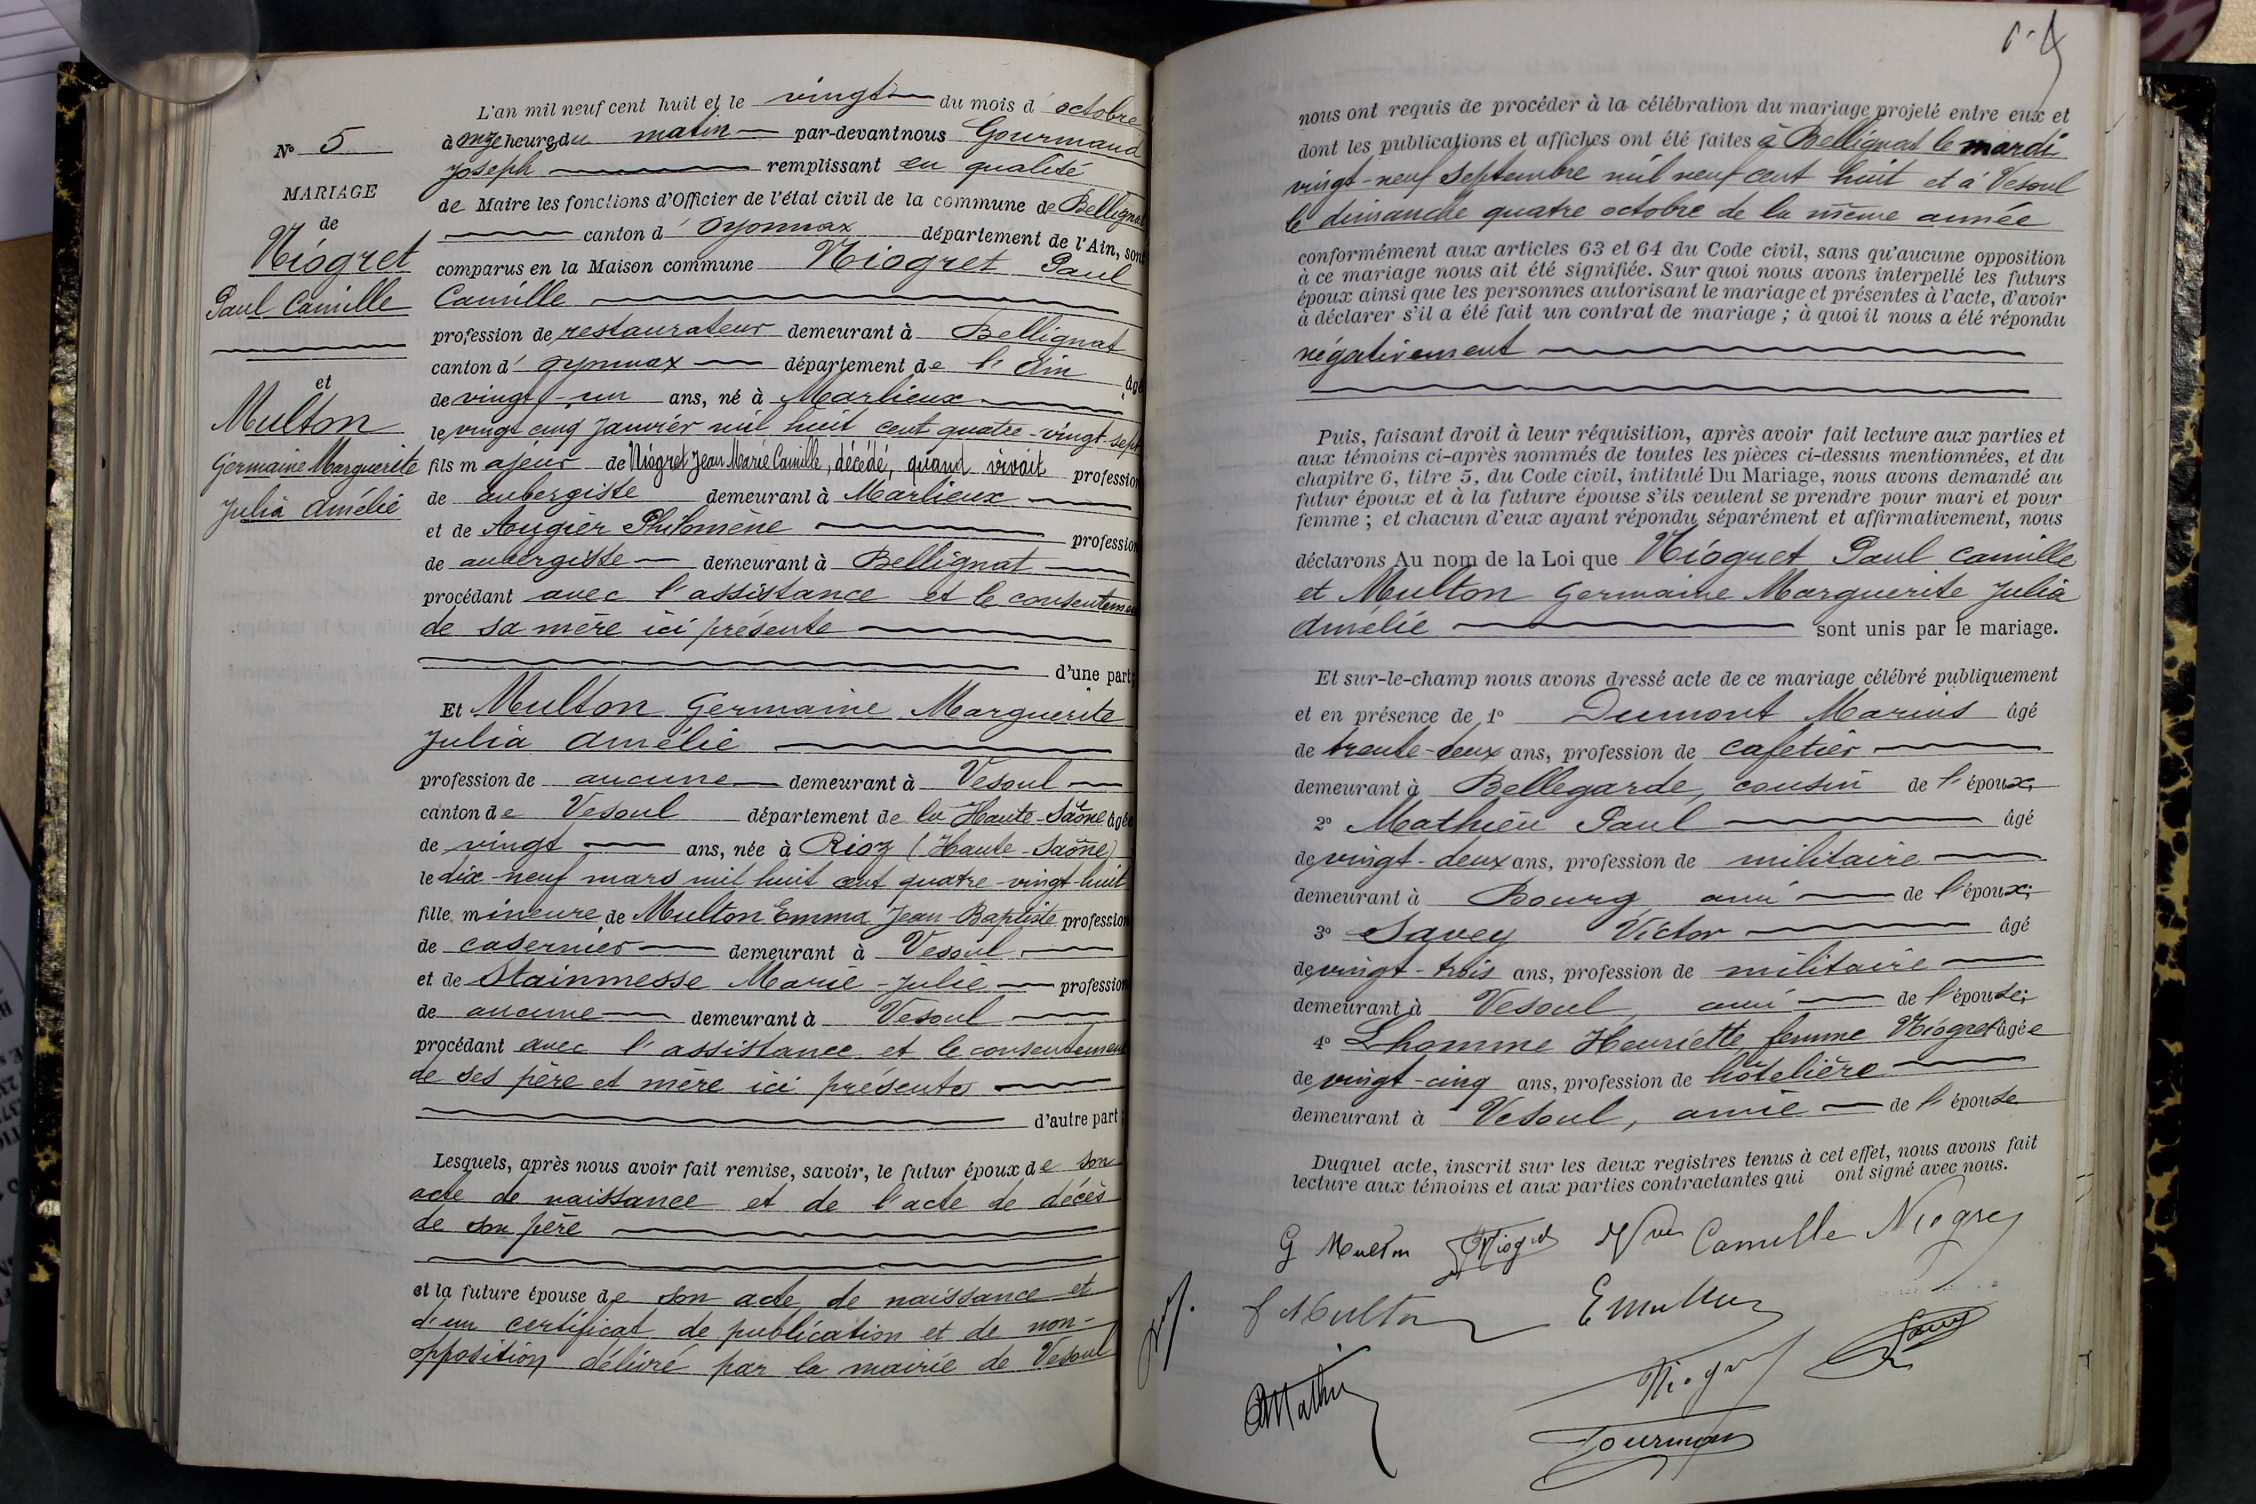 N° 5
MARIAGE
de
Niogret
Paul Camille
et
Multon
Germaine Marguerite
Julia Amélie
L'an mil neuf cent huit et le vingt du mois d'octobre
à onze heures du matin par-devant nous Gourmand
Joseph remplissant en qualité
de Maire les fonctions d'Officier de l'état civil de la commune de Bellignat
canton d'Oyonnax département de l'Ain, sont
comparus en la Maison commune Niogret Paul
Camille
profession de restaurateur demeurant à Bellignat
canton d'Oyonnax département de l'Ain âgé
de vingt-un ans, né à Marlieux
le vingt cinq Janvier mil huit cent quatre-vingt-sept
fils majeur de Niogret Jean Marie Camille, décédé, quand vivait profession
de aubergiste demeurant à Marlieux
et de Augier Philomène profession
de aubergiste demeurant à Bellignat
procédant avec l'assistance et le consentement
de sa mère ici présente
d'une part;
Et Multon Germaine Marguerite
Julia Amélie
profession de aucune demeurant à Vesoul
canton de Vesoul département de la Haute-Saône âgée
de vingt ans, née à Rioz (Haute-Saône)
le dix-neuf mars mil huit cent quatre-vingt-huit
fille mineure de Multon Emma Jean-Baptiste profession
de casernier demeurant à Vesoul
et de Stainmesse Marie-Julie profession
de aucune demeurant à Vesoul
procédant avec l'assistance et le consentement
de ses père et mère ici présents
d'autre part;
Lesquels, après nous avoir fait remise, savoir, le futur époux de son
acte de naissance et de l'acte de décès
de son père
et la future épouse de son acte de naissance et
d'un certificat de publication et de non-
opposition délivré par la mairie de Vesoul
nous ont requis de procéder à la célébration du mariage projeté entre eux et
dont les publications et affiches ont été faites à Bellignat le mardi
vingt-neuf Septembre mil neuf cent huit et à Vesoul
le dimanche quatre octobre de la même année
conformément aux articles 63 et 64 du Code civil, sans qu'aucune opposition
à ce mariage nous ait été signifiée. Sur quoi nous avons interpellé les futurs
époux ainsi que les personnes autorisant le mariage et présentes à l'acte, d'avoir
à déclarer s'il a été fait un contrat de mariage ; à quoi il nous a été répondu
négativement
Puis, faisant droit à leur réquisition, après avoir fait lecture aux parties et
aux témoins ci-après nommés de toutes les pièces ci-dessus mentionnées, et du
chapitre 6, titre 5, du Code civil, intitulé Du Mariage, nous avons demandé au
futur époux et à la future épouse s'ils veulent se prendre pour mari et pour
femme ; et chacun d'eux ayant répondu séparément et affirmativement, nous
déclarons Au nom de la Loi que Niogret Paul Camille
et Multon Germaine Marguerite Julia
Amélie sont unis par le mariage.
Et sur-le-champ nous avons dressé acte de ce mariage célébré publiquement
et en présence de 1° Dumont Marius âgé
de trente-deux ans, profession de cafetier
demeurant à Bellegarde, cousin de l'époux;
2° Mathieu Paul âgé
de vingt-deux ans, profession de militaire
demeurant à Bourg ami de l'époux;
3° Savey Victor âgé
de vingt-trois ans, profession de militaire
demeurant à Vesoul, ami de l'épouse;
4° Lhomme Henriette femme Niogret âgée
de vingt-cinq ans, profession de hôtelière
demeurant à Vesoul, amie de l'épouse
Duquel acte, inscrit sur les deux registres tenus à cet effet, nous avons fait
lecture aux témoins et aux parties contractantes qui ont signé avec nous.
G Multon Niogret Vve Camille Niogret
J Multon E Multon
Niogret Savey
Mathieu
Gourmand